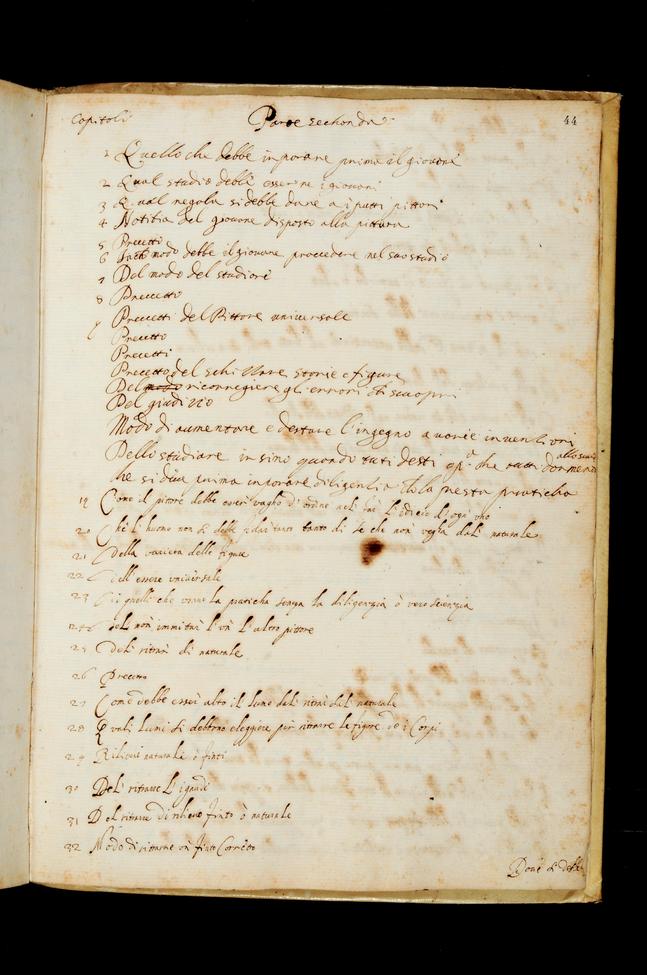 Capitoli Parte sechonda 44
1 Quello che debbe inparare prima il giovane
2 Qual studio debbe essere ne i giovani
3 Qual regola si debbe dare a i putti pittori
4 Notitia del giovane disposto alla pittura
5 Precetti
6 modo debbe il giovane procedere nel suo studio
7 Del modo del studiare
8 Preccetto
9 Precetti del Pittore universale
Precetto
Precetti
Precetto del schizzare storie e figure
Del modo ricorregiere gl errori che scuopri
Del giudizio
Modo di aumentare e destare l'ingegno a varie inventioni
Dello studiare in sino quando tuti desti o pª. che tutti dormenti allo scuro
che si dia prima inparare diligentia che la presta praticha
19 Come il pittore debbe esser vagho d'
20 che l'huomo non si debbe fidar tanto di se che non vegha dal naturale
21 Della varieta delle figure
22 dell essere universale
23 di quelli che usano la praticha senza la diligenzia ò vero scienzia
24 del non immitare l'un l'altro pittore
25 Del ritrar di naturale
26 Precetto
27 Come debbe esser alto il lume dal ritrar del naturale
28 Quali lumi si debbono eleggiere per ritrare le figure de i Corpi
29 Rilievi naturali ò finti
30 Del ritrarre l'ignudi
31 Del ritrarre di rilievo finto ò naturale
32 Modo di ritrarre un finto Corretto
Dove si debbe